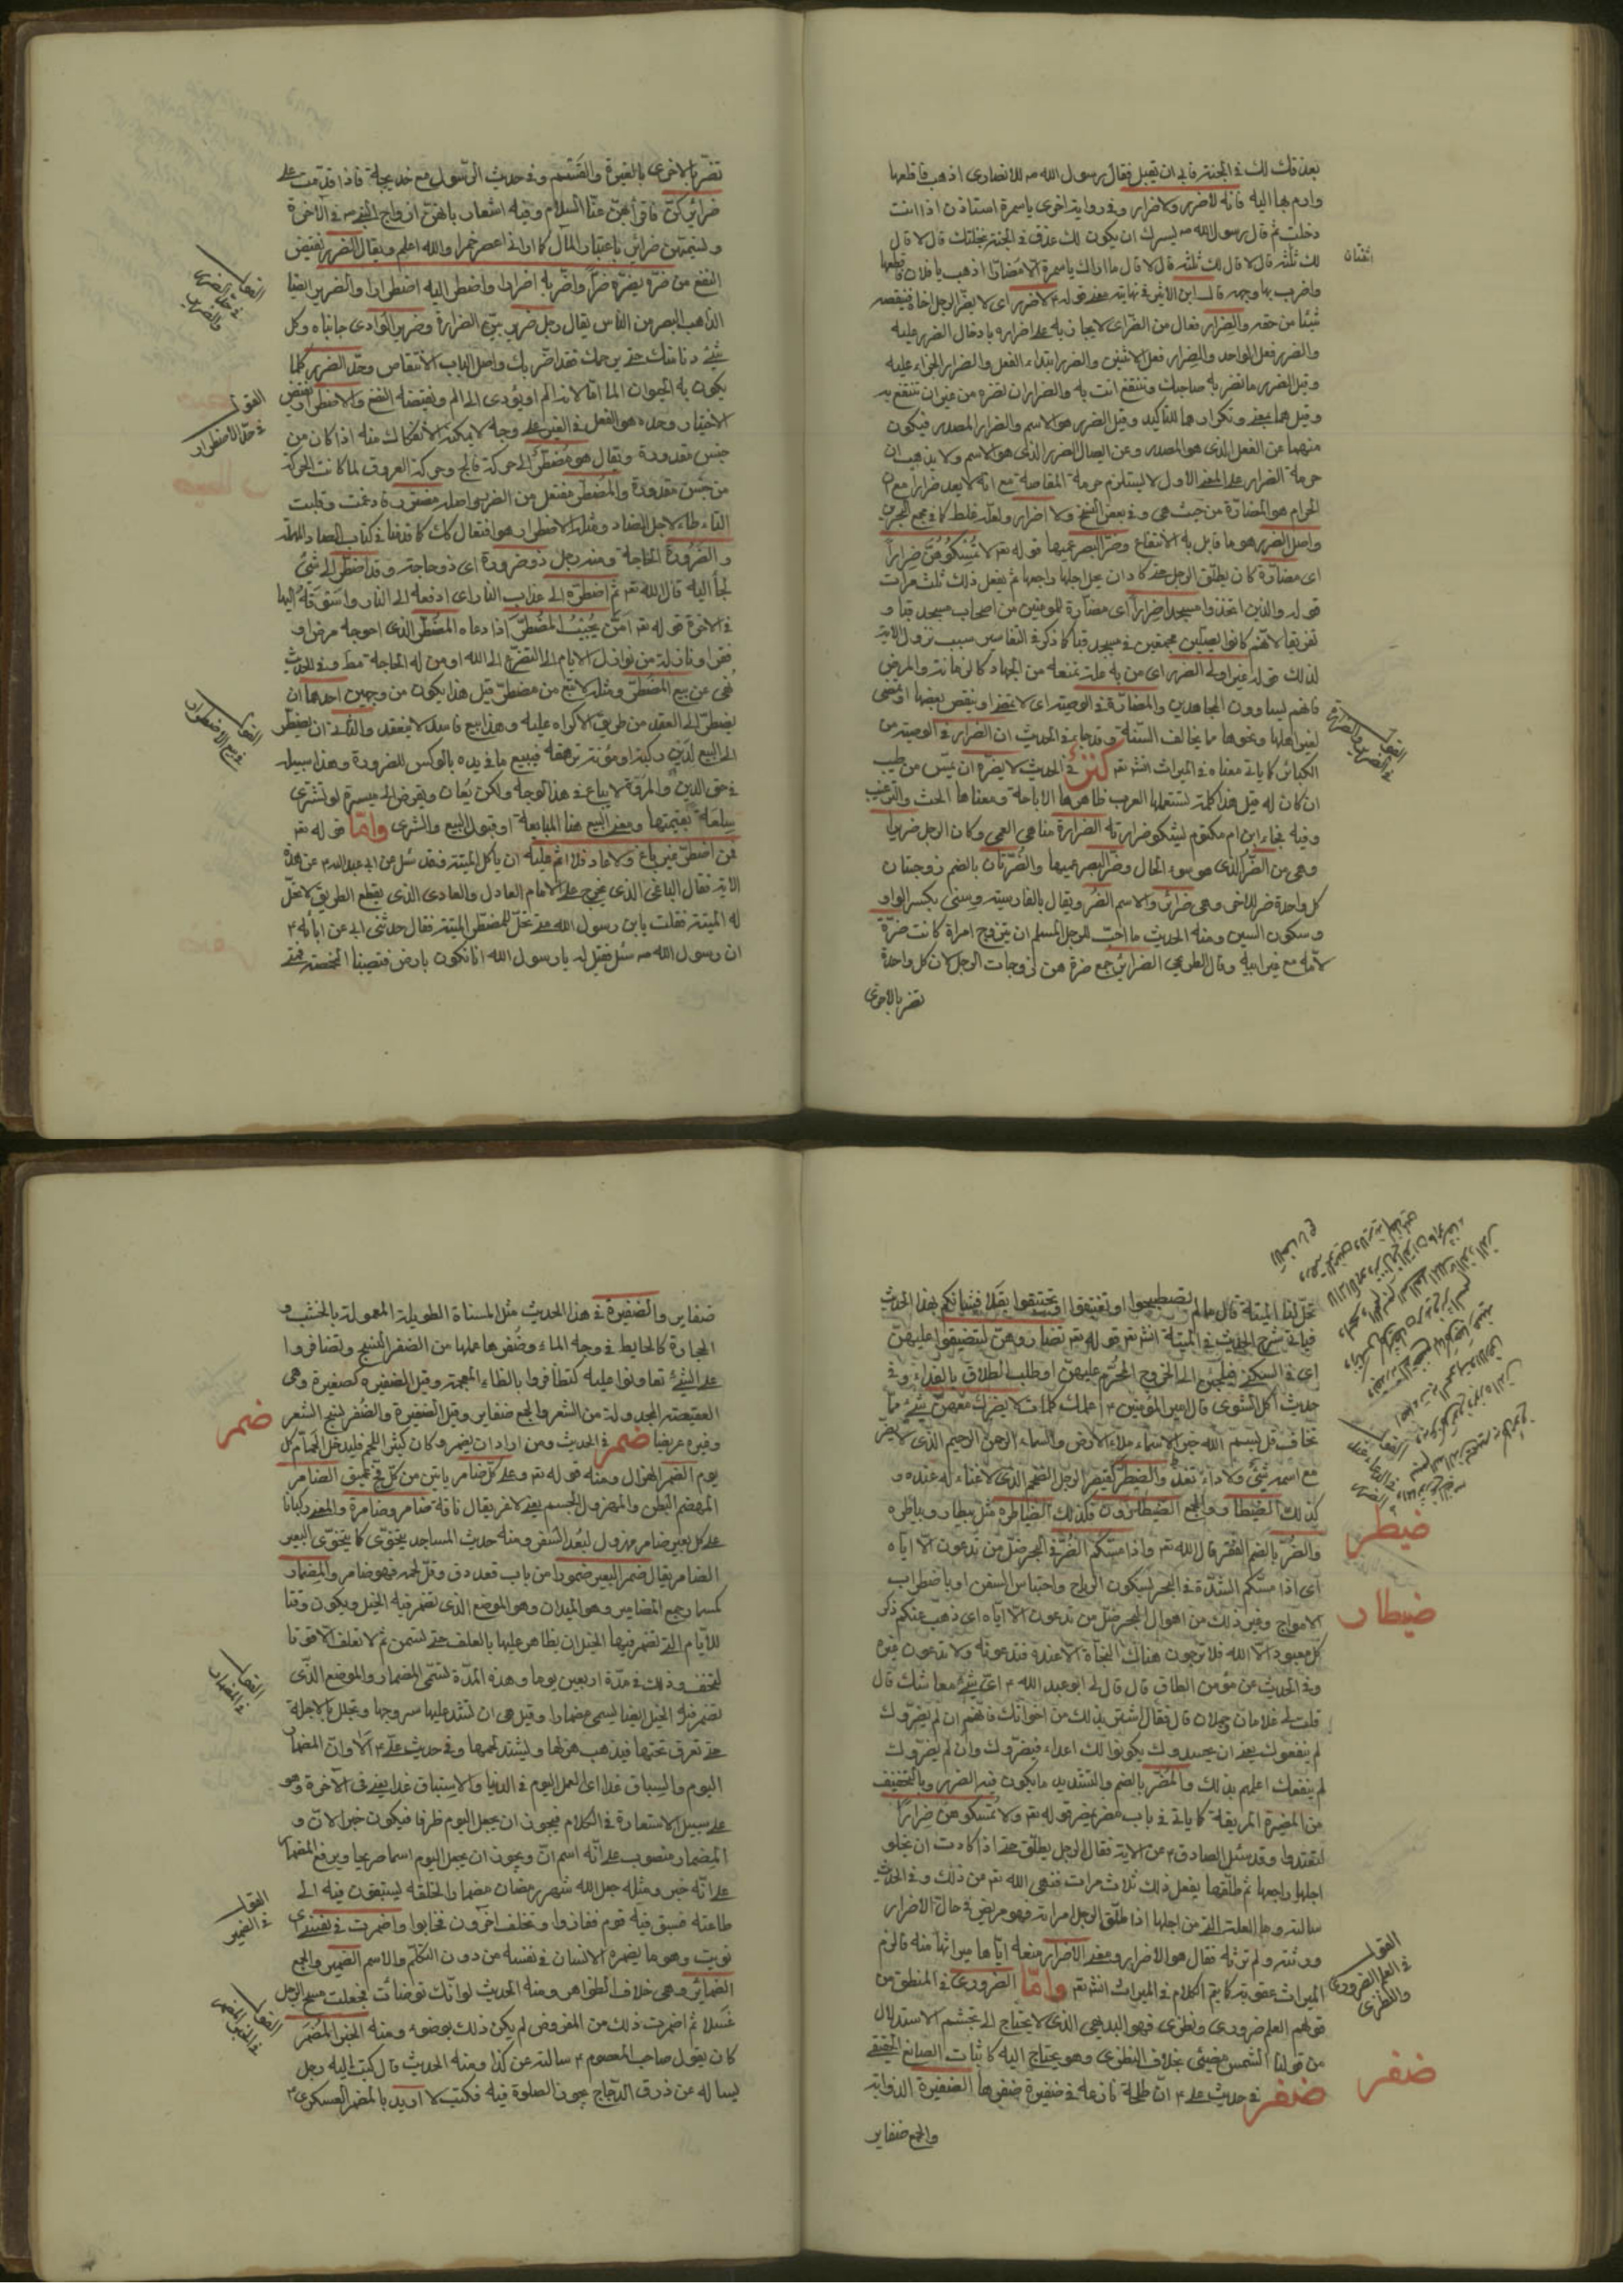 بعذقك لك في الجنة فابى ان يقبل فقال رسول الله ص للانصاري اذهب فاقلعها
وارم بها اليه فانه لا ضرر ولا ضرار وفي رواية اخرى يا سمرة استاذن اذا انت
دخلت ثم قال رسول الله ص يسرك ان يكون لك عذق في الجنة بنخلتك قال لا قال
لك ثلثة قال لا قال ما اراك يا سمرة الا مضارا اذهب يا فلان فاقلعها
واضرب بها وجهه قال ابن الاثير في نهايته معنى قوله لا ضرر اي لا يضر الرجل اخاه فينقصه
شيئا من حقه والضرار فعال من الضر اي لا يجازيه على اضراره بادخال الضرر عليه
والضرر فعل الواحد والضرار فعل الاثنين والضرر ابتداء الفعل والضرار الجزاء عليه
وقيل الضرر ما تضر به صاحبك وتنتفع انت به والضرار ان تضره من غير ان تنتفع به
وقيل هما بمعنى وتكرارهما للتاكيد وقيل الضرر هو الاسم والضرار المصدر فيكون
منهما عن الفعل الذي هو المصدر وعن ايصال الضرر الذي هو الاسم ولا يذهب ان
حرمة الضرار على المعنى الاول لا يستلزم حرمة المقاصة مع انه لا يعد ضرارا مع ان
الحرام هو المضارة من حيث هي وفي بعض النسخ ولا اضرار ولعله غلط كما في مجمع البحرين
واصل الضرر هو ما قابل به الانتفاع وضر البصر عميها قوله تع لا تمسكوهن ضرارا
اي مضارة كان يطلق الرجل حتى كاد ان يحل اجلها راجعها ثم يفعل ذلك ثلث مرات
قوله والذين اتخذوا مسجدا ضرارا اي مضارة للمومنين من اصحاب مسجد قبا و
تفريقا لانهم كانوا يصلين مجمعين في مسجد قبا كما ذكر في التفاسير سبب نزول الاية
لذلك قوله غير اولى الضرر اي من به علة تمنعه من الجهاد كالزمانة والمرض
فانهم يساوون المجاهدين والمضارة في الوصية اي لا تمضى او ينقص بعضها او تمضى
لغير اهلها ونحوها مما يخالف السنة وقد جاء في الحديث ان الضرار في الوصية من
الكبائر كما ياتي معناه في الميراث انش تع كنز في الحديث لا يضره ان يمس من طيب
ان كان له قيل هذا كلمة تستعملها العرب ظاهرها الاباحة ومعناها الحث والترغيب
وفيه فجاء ابن ام مكتوم يشكو ضرارته الضرارة هنا هي العمى وكان الرجل ضريرا
وهي من الضر الذي هو سوء الحال وضر البصر عميها والضرتان بالضم زوجتان
كل واحدة ضر للاخرى وهي ضرائر والاسم الضر ويقال بالفارسية وسنى بكسر الواو
وسكون السين ومنه الحديث ما احب للرجل المسلم ان يتزوج امراة كانت ضرة
لامه مع غير ابيه وقال الطريحي الضرائر جمع ضرة هن زوجات الرجل لان كل واحدة
تضر بالاخرى
تضر بالاخرى بالغيرة والقسم وفي حديث الرسول مع خديجة فاذا قدمت على
ضرائرك فاقراهن عنا السلام وفيه اشعار بانهن ازواج النبي ص في الاخرة
وتسميتهن ضرائر باعتبار المآل كما اراني اعصر خمرا والله اعلم ويقال الضرر نقيض
النفع من ضره يضره ضرا واضر به اضرارا واضطر اليه اضطرارا والضرير ايضا
الذاهب البصر من الناس يقال رجل ضرير بين الضرارة وضرير الوادي جانباه وكل
شئ دنا منك حتى يزحمك فقد اضر بك واصل الباب الانتقاص وحد الضرر كلما
يكون به الحيوان الما اما لانه الم او يؤدى الى الم ونقيضه النفع والاضطرار نقيض
الاختيار وحده هو الفعل في الغير على وجه لا يمكنه الانفكاك منه اذا كان من
جنس مقدوره ويقال هو مضطر الى حركة فالج وحركة العروق لما كانت الحركة
من جنس مقدوره والمضطر مفتعل من الضر واصله مضترر فادغمت وقلبت
التاء طاء لاجل الضاد ومثله الاضطرار هو افتعال كك كما قدمنا في كتاب الصاد المهملة
والضرورة الحاجة ومنه رجل ذو ضرورة اي ذو حاجة وقد اضطر الى شئ
لجأ اليه قال الله تع ثم اضطره الى عذاب النار اي ادفعه الى النار واسوقه اليها
في الاخرة قوله تع امن يجيب المضطر اذا دعاه المضطر الذي احوجه مرض او
فقر او نازلة من نوازل الايام الى التضرع الى الله او من له الحاجة مط وفي الحديث
نهى عن بيع المضطر ومثله لا تبع من مضطر قيل هذا يكون من وجهين احدهما ان
يضطر الى العقد من طريق الاكراه عليه وهذا بيع فاسد لا ينعقد والثاني ان يضطر
الى البيع لدين ركبه او مؤنة ترهقه فيبيع ما في يده بالوكس للضرورة وهذا سبيله
في حق الدين والمروة لا يباع في هذا الوجه ولكن يعان ويقرض الى ميسرة او تشترى
سلعته بقيمتها ومعنى البيع هنا المبايعة او قبول البيع والشرى واما قوله تع
فمن اضطر غير باغ ولا عاد فلا اثم عليه ان ياكل الميتة فقد سئل عن ابي عبد الله ع عن هذه
الاية فقال الباغي الذي يخرج على الامام العادل والعادي الذي يقطع الطريق لا تحل
له الميتة فقلت يابن رسول الله متى تحل للمضطر الميتة فقال حدثني ابي عن ابائه ع
ان رسول الله ص سئل فقيل له يا رسول الله انا نكون بارض فتصيبنا المخمصة فمتى
القول في معنى الضرر والضرير
القول في حد الاضطرار
القول في بيع الاضطرار
القول في الضرر والضرارة
تحل لنا الميتة قال ما لم تصطبحوا او تغتبقوا او تحتفوا بقلا فشانكم بهذا الحديث
فياتي شرح الحديث في الميتة انش تع قوله تع تضاروهن لتضيقوا عليهن
اي في السكنى فيلجئن الى الخروج المحرم عليهن او طلب الطلاق بالفداء وفي
حديث اكل الشوى قال امير المؤمنين ع اعلمك كلمات لا يضرك معهن شئ مما
تخاف قل بسم الله خير الاسماء ملاء الارض والسماء الرحمن الرحيم الذي لا يضر
مع اسمه شئ ولا داء تغد والضيطر كقيصر الرجل الضخم الذي لا غناء له عنده و
كذلك الضيطار والجمع الضيطارون وكذلك الضياطرة مثل بيطار وبياطرة
والضر بالضم الفقر قال الله تع واذا مسكم الضر في البحر ضل من تدعون الا اياه
اي اذا مسكم الشدة في البحر بسكون الرياح واحتباس السفن او باضطراب
الامواج وغير ذلك من اهوال البحر ضل من تدعون الا اياه اي ذهب عنكم ذكر
كل معبود الا الله فلا ترجون هناك النجاة الا عنده فتدعونه ولا تدعون غيره
وفي الحديث عن مؤمن الطاق قال قال لي ابو عبد الله ع اي شئ معاشك قال
قلت لي غلامان وجملان قال فقال استر بذلك من اخوانك فانهم ان لم يضروك
لم ينفعوك يعنى ان يحسدوك يكونوا لك اعداء فيضروك وان لم يضروك
لم ينفعك اعلمهم بذلك والمضر بالضم والتشديد ما يكون فيه الضرر وبالتخفيف
من المضيرة المريقة كما ياتي في باب مضر بمضر قوله تع ولا تمسكوهن ضرارا
لتعتدوا وقد سئل الصادق ع عن الاية فقال الرجل يطلق حتى اذا كادت ان يخلو
اجلها راجعها ثم طلقها يفعل ذلك ثلاث مرات فنهى الله تع عن ذلك وفي الحديث
سالته ما العلة التي من اجلها اذا طلق الرجل امراته فهو مريض في حال الاضرار
ورثته ولم ترثه فقال هو الاضرار ومعنى الاضرار منعه اياها ميراثها منه فالزم
الميراث عقوبة كما يتم الكلام في الميراث انش تع واما الضروري في المنطق من
قولهم العلم ضروري ونظري فهو البديهي الذي لا يحتاج الى تجشم الاستدلال
من قولنا الشمس مضيئى بخلاف النظري وهو يحتاج اليه كاثبات الصانع الحقيقي
ضفر في حديث علي ع ان طلحة نازعه في ضفيرة ضفرها الضفيرة الذوابة
والجمع ضفاير
ضيطر
ضيطار
القول في العلم الضروري والنظري
ضفر
ضفاير والضفيرة في هذا الحديث مثل المسناة الطويلة المعمولة بالخشب و
الحجارة كالحايط في وجه الماء وضفرها عملها من الضفر النسج وتضافروا
على الشئ تعاونوا عليه كتظافروا بالظاء المعجمة وقيل الضفيره كصغيرة وهي
العقيصة المجدولة من الشعر والجمع ضفاير وقيل الضفيرة والضفر نسج الشعر
وغيره عريضا ضمر في الحديث ومن اراد ان يضمر وكان كثير اللحم فليدخل الحمام كل
يوم الضمر الهزال ومنه قوله تع وعلى كل ضامر ياتين من كل فج عميق الضامر
المهضم البطن والمهزول الجسم يعنى لاغر يقال ناقة ضامر وضامرة والمعنى ركبانا
على كل بعير ضامر مهزول لبعد السفر ومنه حديث المساجد يتخوى كما يتخوى البعير
الضامر يقال ضمر البعير ضمورا من باب قعد دق وقل لحمه فهو ضامر والمضمار
كمسمار جمع المضامير وهو الميدان وهو الموضع الذي تضمر فيه الخيل ويكون وقتا
للايام التي تضمر فيها الخيل ان يظاهر عليها بالعلف حتى تسمن ثم لا تعلف الا قوتا
لتخف وذلك في مدة اربعين يوما وهذه المدة تسمى المضمار والموضع الذي
تضمر فيه الخيل ايضا يسمى مضمارا وقيل هي ان تشد عليها سروجها وتجلل بالاجلة
حتى تعرق تحتها فيذهب هزلها ويشتد لحمها وفي حديث علي ع الا وان المضمار
اليوم والسباق غدا اي العمل اليوم في الدنيا والاستباق غدا يعنى في الاخرة وهو
على سبيل الاستعارة في الكلام فيجوز ان يجعل اليوم ظرفا فيكون خبر الان و
المضمار منصوب على انه اسم ان ويجوز ان يجعل اليوم اسما صريحا ويرفع المضمار
على انه خبر ومثله جعل الله شهر رمضان مضمارا لخلقه يستبقون فيه الى
طاعته فسبق فيه قوم ففازوا وتخلف اخرون فخابوا واضمرت في نفسى اي
نويت وهو ما يضمره الانسان في نفسه من دون التكلم والاسم الضمير والجمع
الضمائر وهي خلاف الظواهر ومنه الحديث لو انك توضات فجعلت مسح الرجل
غسلا ثم اضمرت ذلك من المفروض لم يكن ذلك بوضوء ومنه الخبر المضمر
كان يقول صاحب المعصوم ع سالته عن كذا ومنه الحديث قال كتب اليه رجل
يساله عن ذرق الدجاج يجوز الصلوة فيه فكتب لا اريد بالمضمر العسكري ع
ضمر
القول في المضمار
القول في الضمير
القول في الخبر المضمر